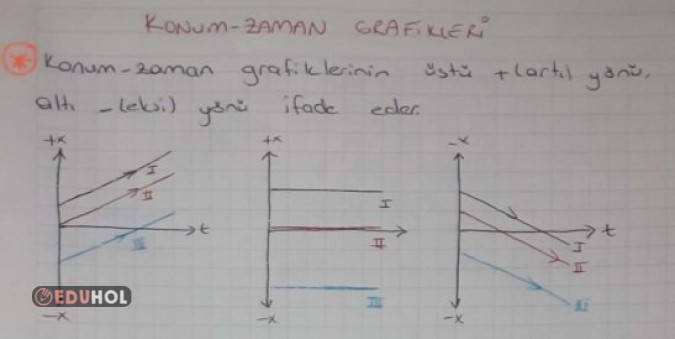 KONUM-ZAMAN GRAFİKLERİ
* Konum-zaman grafiklerinin üstü +(artı) yönü,
altı -(eksi) yönü ifade eder.
+x +x -x
I
II
III
t
I
II
III
t
I
II
III
EDUHOL
-x -x -x